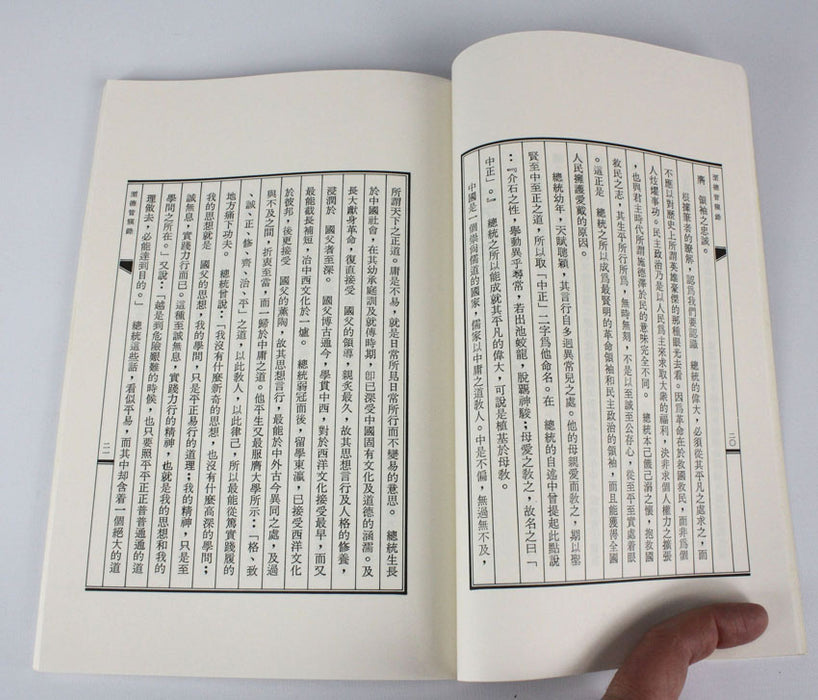 領袖之忠誠。
根據筆者的瞭解,認爲我們要認識 總統的偉大,必須從其平凡之處求之,而
不應以對歷史上所謂英雄豪傑的那種眼光去看。因爲革命在於救國救民,而非爲個
人炫燿事功。民主政治乃是以人民爲主來求取大衆的福利,決非求個人權力之擴張
,也與君主時代所謂施德澤於民的意味完全不同。 總統本己饑己溺之懷,抱救國
救民之志,其生平所行所爲,無時無刻,不是以至誠至公存心,從至平至實處着眼
。這正是 總統之所以成爲最賢明的革命領袖和民主政治的領袖,而且能獲得全國
人民擁護愛戴的原因。
總統幼年,天賦聰穎,其言行自多迥異常兒之處。他的母親愛而敎之,期以聖
賢至中至正之道,所以取「中正」二字爲他命名。在 總統的自述中曾提起此點說
:『介石之性,舉動異乎尋常,若出池蛟龍,脫羈神駿;母愛之敎之,故名之曰「
中正」。』 總統之所以能成就其平凡的偉大,可說是植基於母敎。
中國是一個崇尙儒道的國家,儒家以中庸之道敎人。中是不偏,無過無不及,
二〇
所謂天下之正道。庸是不易,就是日常所見日常所行而不變易的意思。 總統生長
於中國社會,在其幼承庭訓及就傳時期,卽已深受中國固有文化及道德的涵濡。及
長大獻身革命,復直接受 國父的領導,親炙最久,故其思想言行及人格的修養,
浸潤於 國父者至深。 國父博古通今,學貫中西,對於西洋文化接受最早,而又
最能截長補短,冶中西文化於一爐。 總統弱冠而後,留學東瀛,已接受西洋文化
於彼邦,後更接受 國父的薰陶,故其思想言行,最能於中外古今異同之處,及過
與不及之間,折衷至當,而一歸於中庸之道。他平生又最服膺大學所示:「格、致
、誠、正、修、齊、治、平」之道,以此敎人,以此律己,所以最能從篤實踐履的
地方痛下功夫。 總統曾說:「我沒有什麼新奇的思想,也沒有什麼高深的學問;
我的思想就是 國父的思想,我的學問,只是平正易行的道理;我的精神,只是至
誠無息,實踐力行而已。這種至誠無息,實踐力行的精神,也就是我的思想和我的
學問之所在。」又說:「越是到危險艱難的時候,也只要照平平正正普普通通的道
理做去,必能達到目的。」 總統這些話,看似平易,而其中却含着一個絕大的道
二一